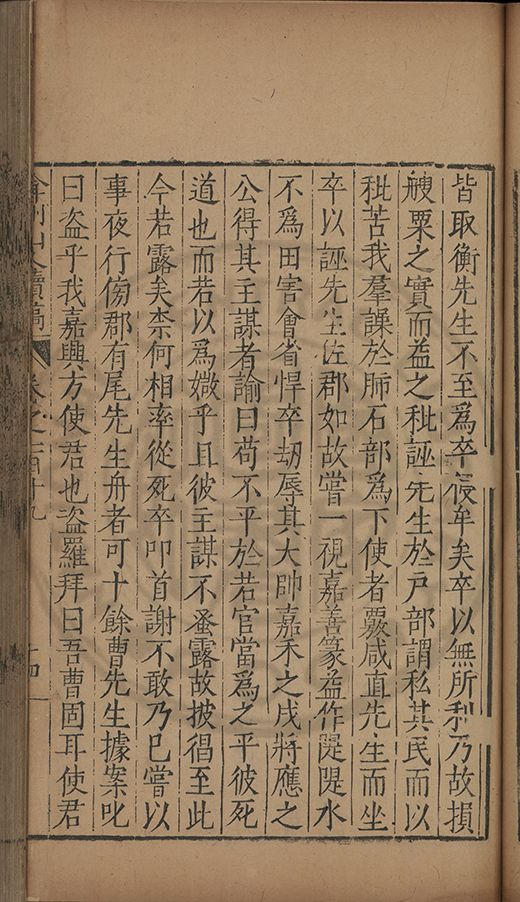 皆取衡先生不至爲卒侵牟矣卒以無所利乃故損
艘粟之實而益之秕誣先生於戶部謂私其民而以
秕苦我羣譟於肺石部爲下使者覈咸直先生而坐
卒以誣先生佐郡如故嘗一視嘉善篆益作隄隄水
不爲田害會省悍卒劫辱其大帥嘉禾之戍將應之
公得其主謀者諭曰苟不平於若官當爲之平彼死
道也而若以爲媺乎且彼主謀不蚤露故披猖至此
今若露矣柰何相率從死卒叩首謝不敢乃已嘗以
事夜行傍郡有尾先生舟者可十餘曹先生據案叱
曰盗乎我嘉興方使君也盗羅拜曰吾曹固耳使君
弇州山人續稿 卷之一百十九 十四